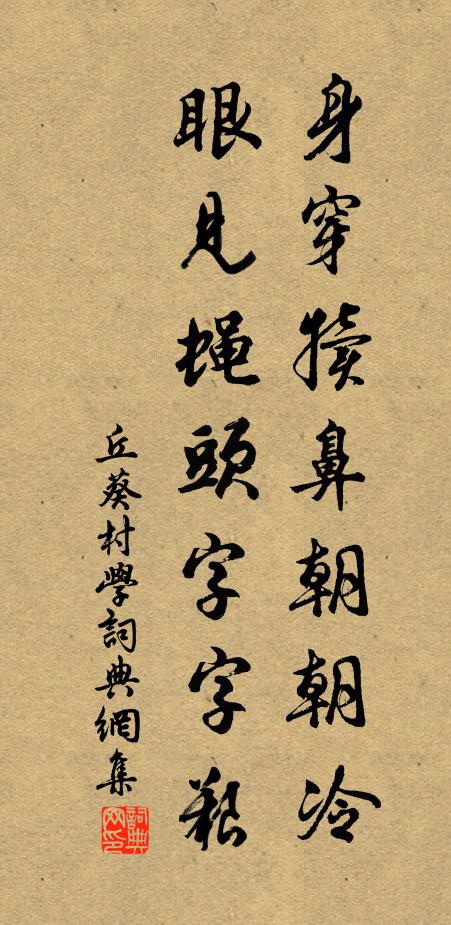 身穿犊鼻朝朝冷
眼见蝇頭字字艱
丘葵村學詞典網集
詞典网印